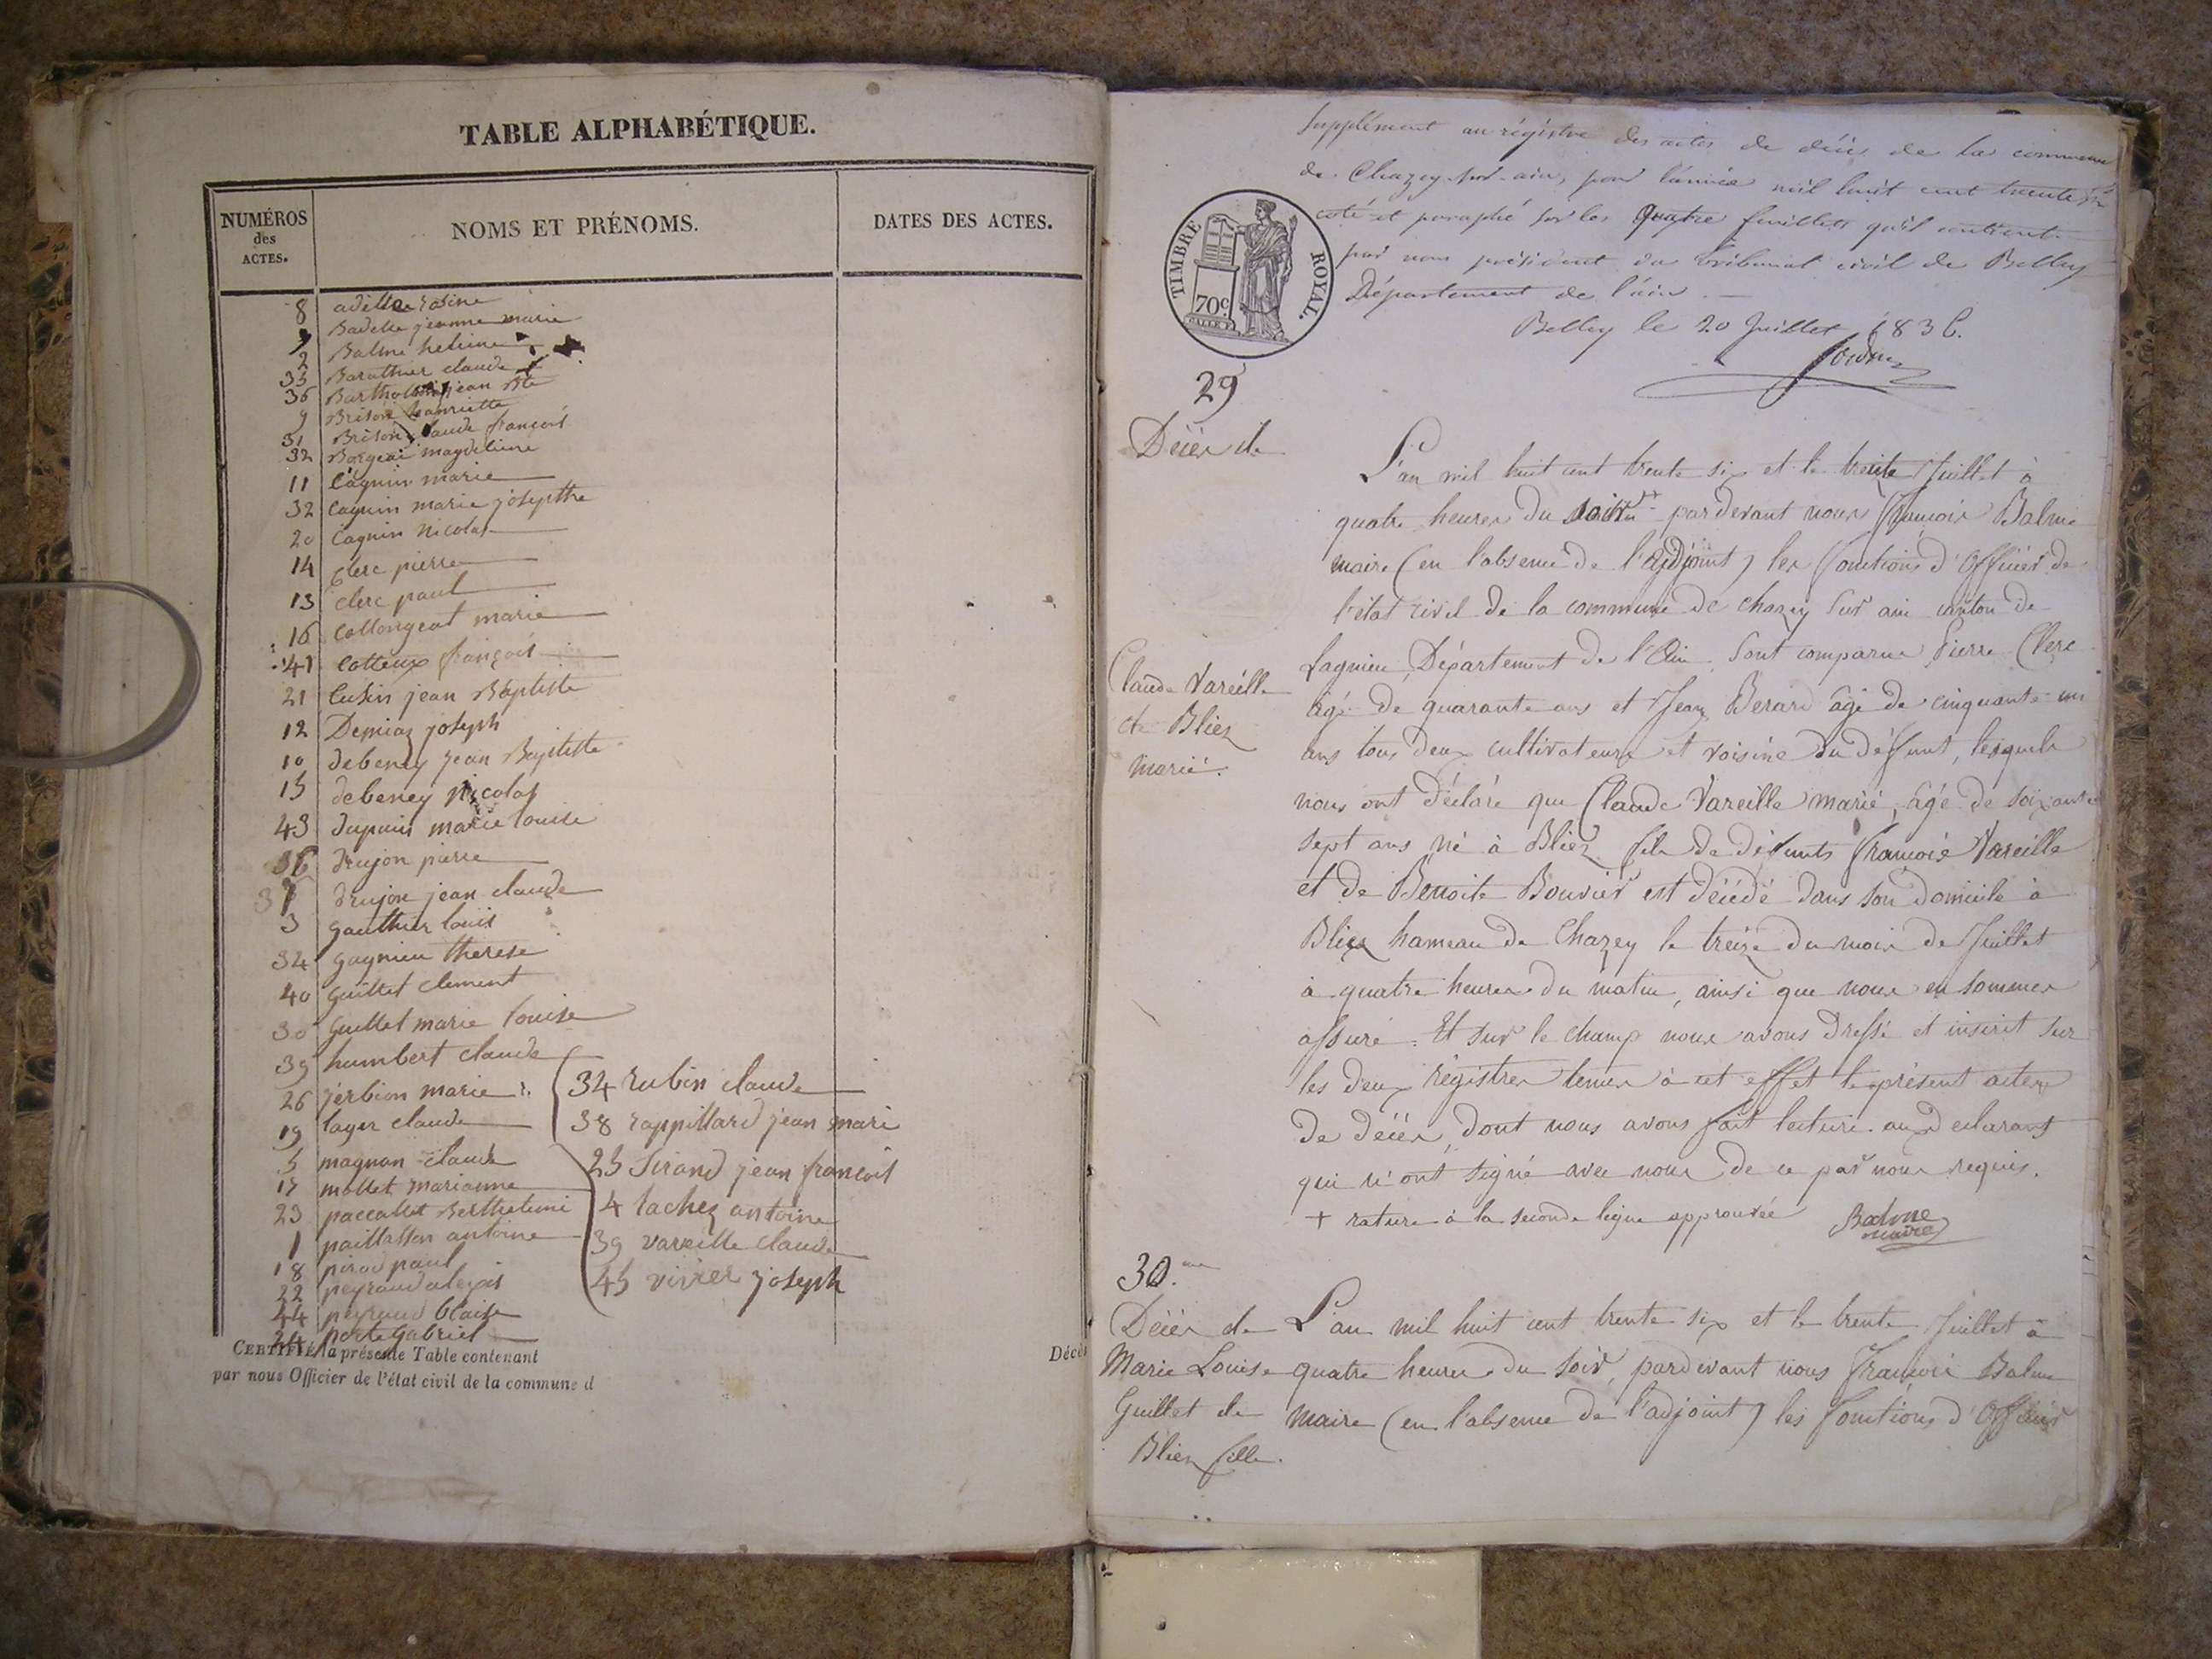 TABLE ALPHABÉTIQUE.
NUMÉROS
des
ACTES.
NOMS ET PRÉNOMS.
DATES DES ACTES.
8 adille rosine
Badelle jeanne marie
2 Balme
35 Barathier claude
36 jean Bte
9 Brison henriette
31 Brison claude françois
32 magdeleine
11 Cagnin marie
32 Cagnin marie josepthe
20 Cagnin Nicolas
14 Clerc pierre
13 clerc paul
16 Collongeat marie
41 Cotteux françois
21 Cusin jean Baptiste
12 Demiaz joseph
10 debeney jean Baptiste
15 debeney nicolas
43 dupuis marie louise
36 drujon pierre
37 drujon jean claude
3 gauthier louis
34 gagnieu therese
40 guillet clement
30 guillet marie louise
39 humbert claude
26 jerbion marie
19 layer claude
5 magnan claude
17 mollet marianne
23 paccallet Berthelemi
1 paillasson antoine
18 paul
22 peyraud alexis
44 peyraud blaise
24 porte gabriel
34 rubin claude
38 rappillard jean mari
25 Sirand jean francois
4 tachez antoine
39 vareille claude
45 vivier joseph
CERTIFIÉ la présente Table contenant
Décès
par nous Officier de l'état civil de la commune d
Supplément au régistre des actes de décès de la commune
de Chazey-sur-ain, pour l'année mil huit cent trente six
coté et paraphé sur les quatre feuillets qu'il contient
par nous président du tribunal civil de Belley
Département de l'ain.
Belley le 20 Juillet 1836.
TIMBRE ROYAL.
70c
29
Décès de
Claude Vareille
de Bliez
marié.
L'an mil huit cent trente six et le treize Juillet à
quatre heures du soir + pardevant nous François Balme
maire (en l'absence de l'adjoint) les fonctions d'Officier de
l'état civil de la commune de chazey sur ain canton de
Lagnieu, Département de l'Ain. Sont comparus Pierre Clerc
âgé de quarante ans et Jean Berard âgé de cinquante un
ans tous deux cultivateurs et voisins du défunt, lesquels
nous ont déclaré que Claude Vareille marié, âgé de soixante
sept ans né à Bliez fils de défunts François Vareille
et de Benoite Bouvier est décédé dans son domicile à
Bliez hameau de Chazey le treize du mois de Juillet
à quatre heures du matin, ainsi que nous en sommes
assuré. Et sur le champ nous avons dressé et inscrit sur
les deux régistres tenus à cet effet le présent acte
de décès, dont nous avons fait lecture aux declarants
qui n'ont signé avec nous de ce par nous requis.
+ rature à la seconde ligne approuvée
Balme
maire
30.me
Décès de
Marie Louise
Guillet de
Bliez fille.
L'an mil huit cent trente six et le trente Juillet à
quatre heures du soir, pardevant nous François Balme
maire (en l'absence de l'adjoint) les fonctions d'Officier